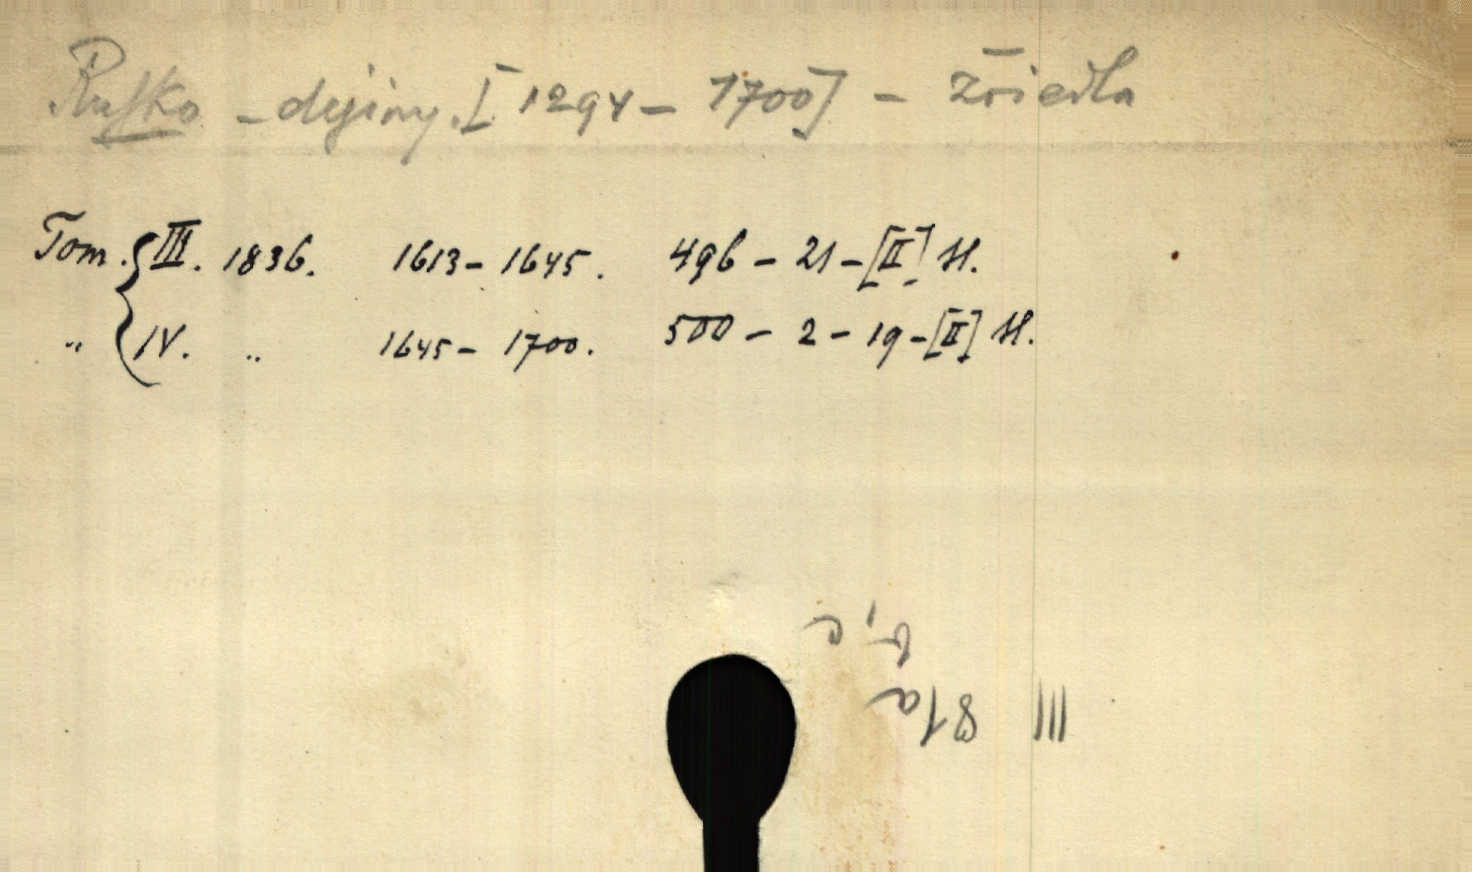 Rusko - dejiny. [1294 - 1700] - Zriedla
Tom. { III. 1836. 1613 - 1645. 496 - 21 - [II] H.
„ { IV. „ 1645 - 1700. 500 - 2 - 19 - [II] H.
III 81a
b, c